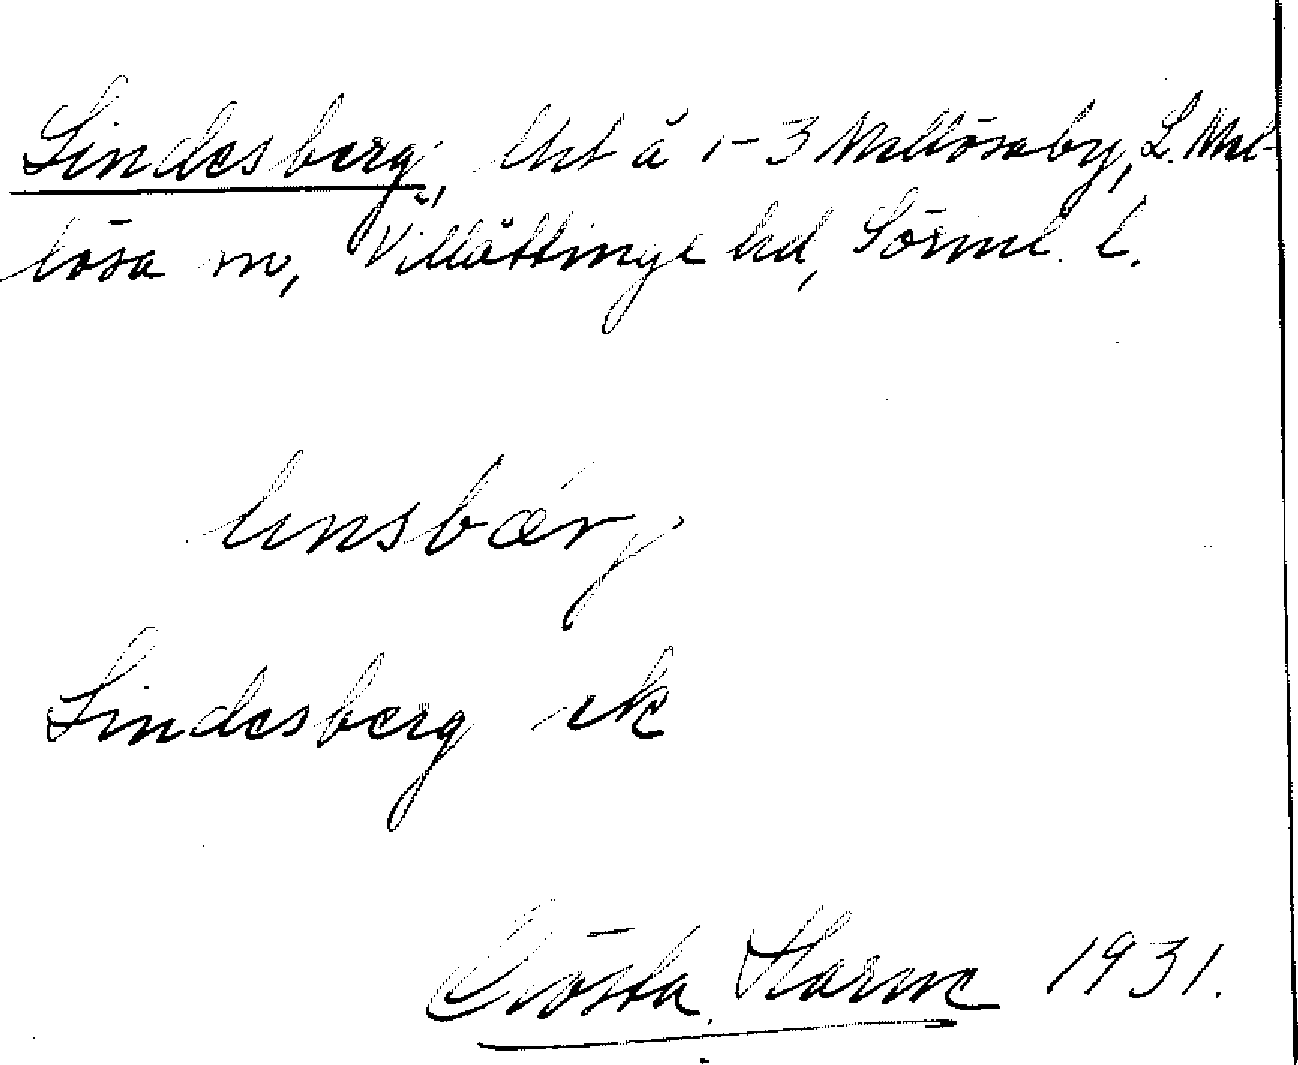 Lindesberg, lht å 1-3 Mellösaby, L. Mel-
lösa sn, Villåttinge hd, Sörml. l.
linsbærj
Lindesberg ek
Gösta Harme 1931.